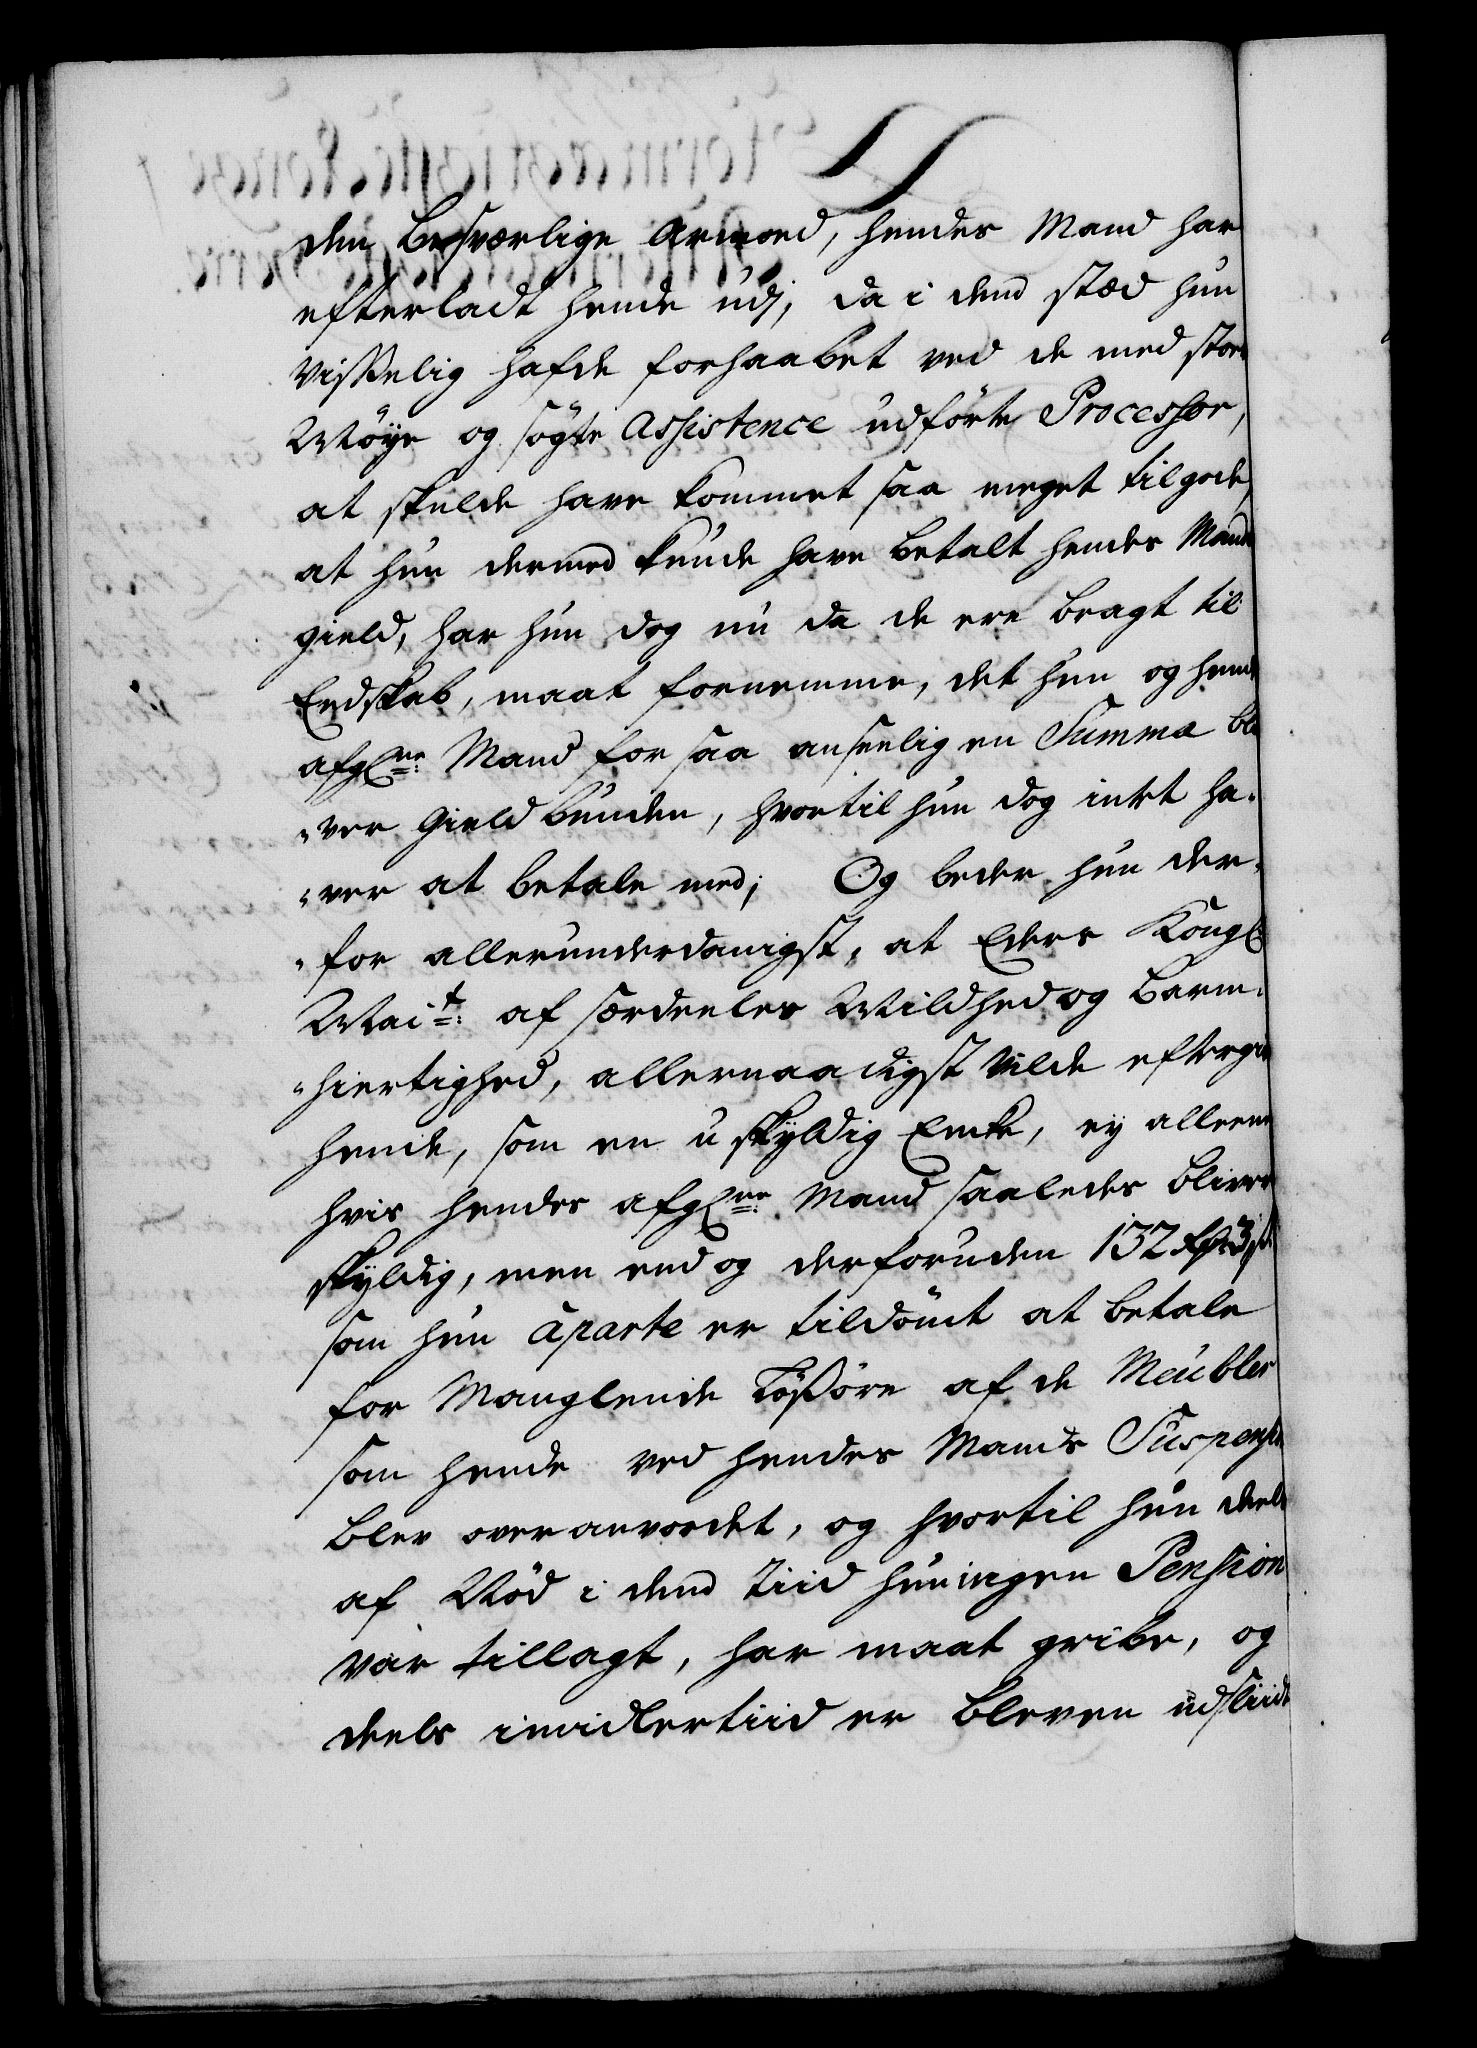 den besværlige Armoed, hendes Mand har
efterladt hende udj, da i dend stæd hun
visselig hafde forhaabet ved de med stor
Møye og søgte Assistence udförte Processer,
at skulde have kommet saa meget tilgode,
at hun dermed kunde have betalt hendes Mands
gield, har hun dog nu da de ere bragt til
Endskab, maat fornemme, det hun og hendes
afgl:ne Mand for saa anseelig en Summa bli¬
"ver Gield bunden, hvortil hun dog intet ha¬
"ver at betale med; Og beder hun der¬
"for allerunderdanigst, at Eders Kongl:
Mait: af særdeeles Mildhed og Barm¬
"hiertighed, allernaadigst vilde eftergive
hende, som en uskyldig Encke, ej alleene
hvis hendes afgl:ne Mand saaledes bliver
skyldig, men end og derforuden 132 Rdr 3 sk
som hun aparte er tildömt at betale
for Manglende Løsöre af de Meubler
som hende ved hendes Mands Suspension
blev overanvordet, og hvortil hun deels
af Nöd i dend Tiid hun ingen Pension
var tillagt, har maat gribe, og
deels imidlertiid er bleven udsliidt